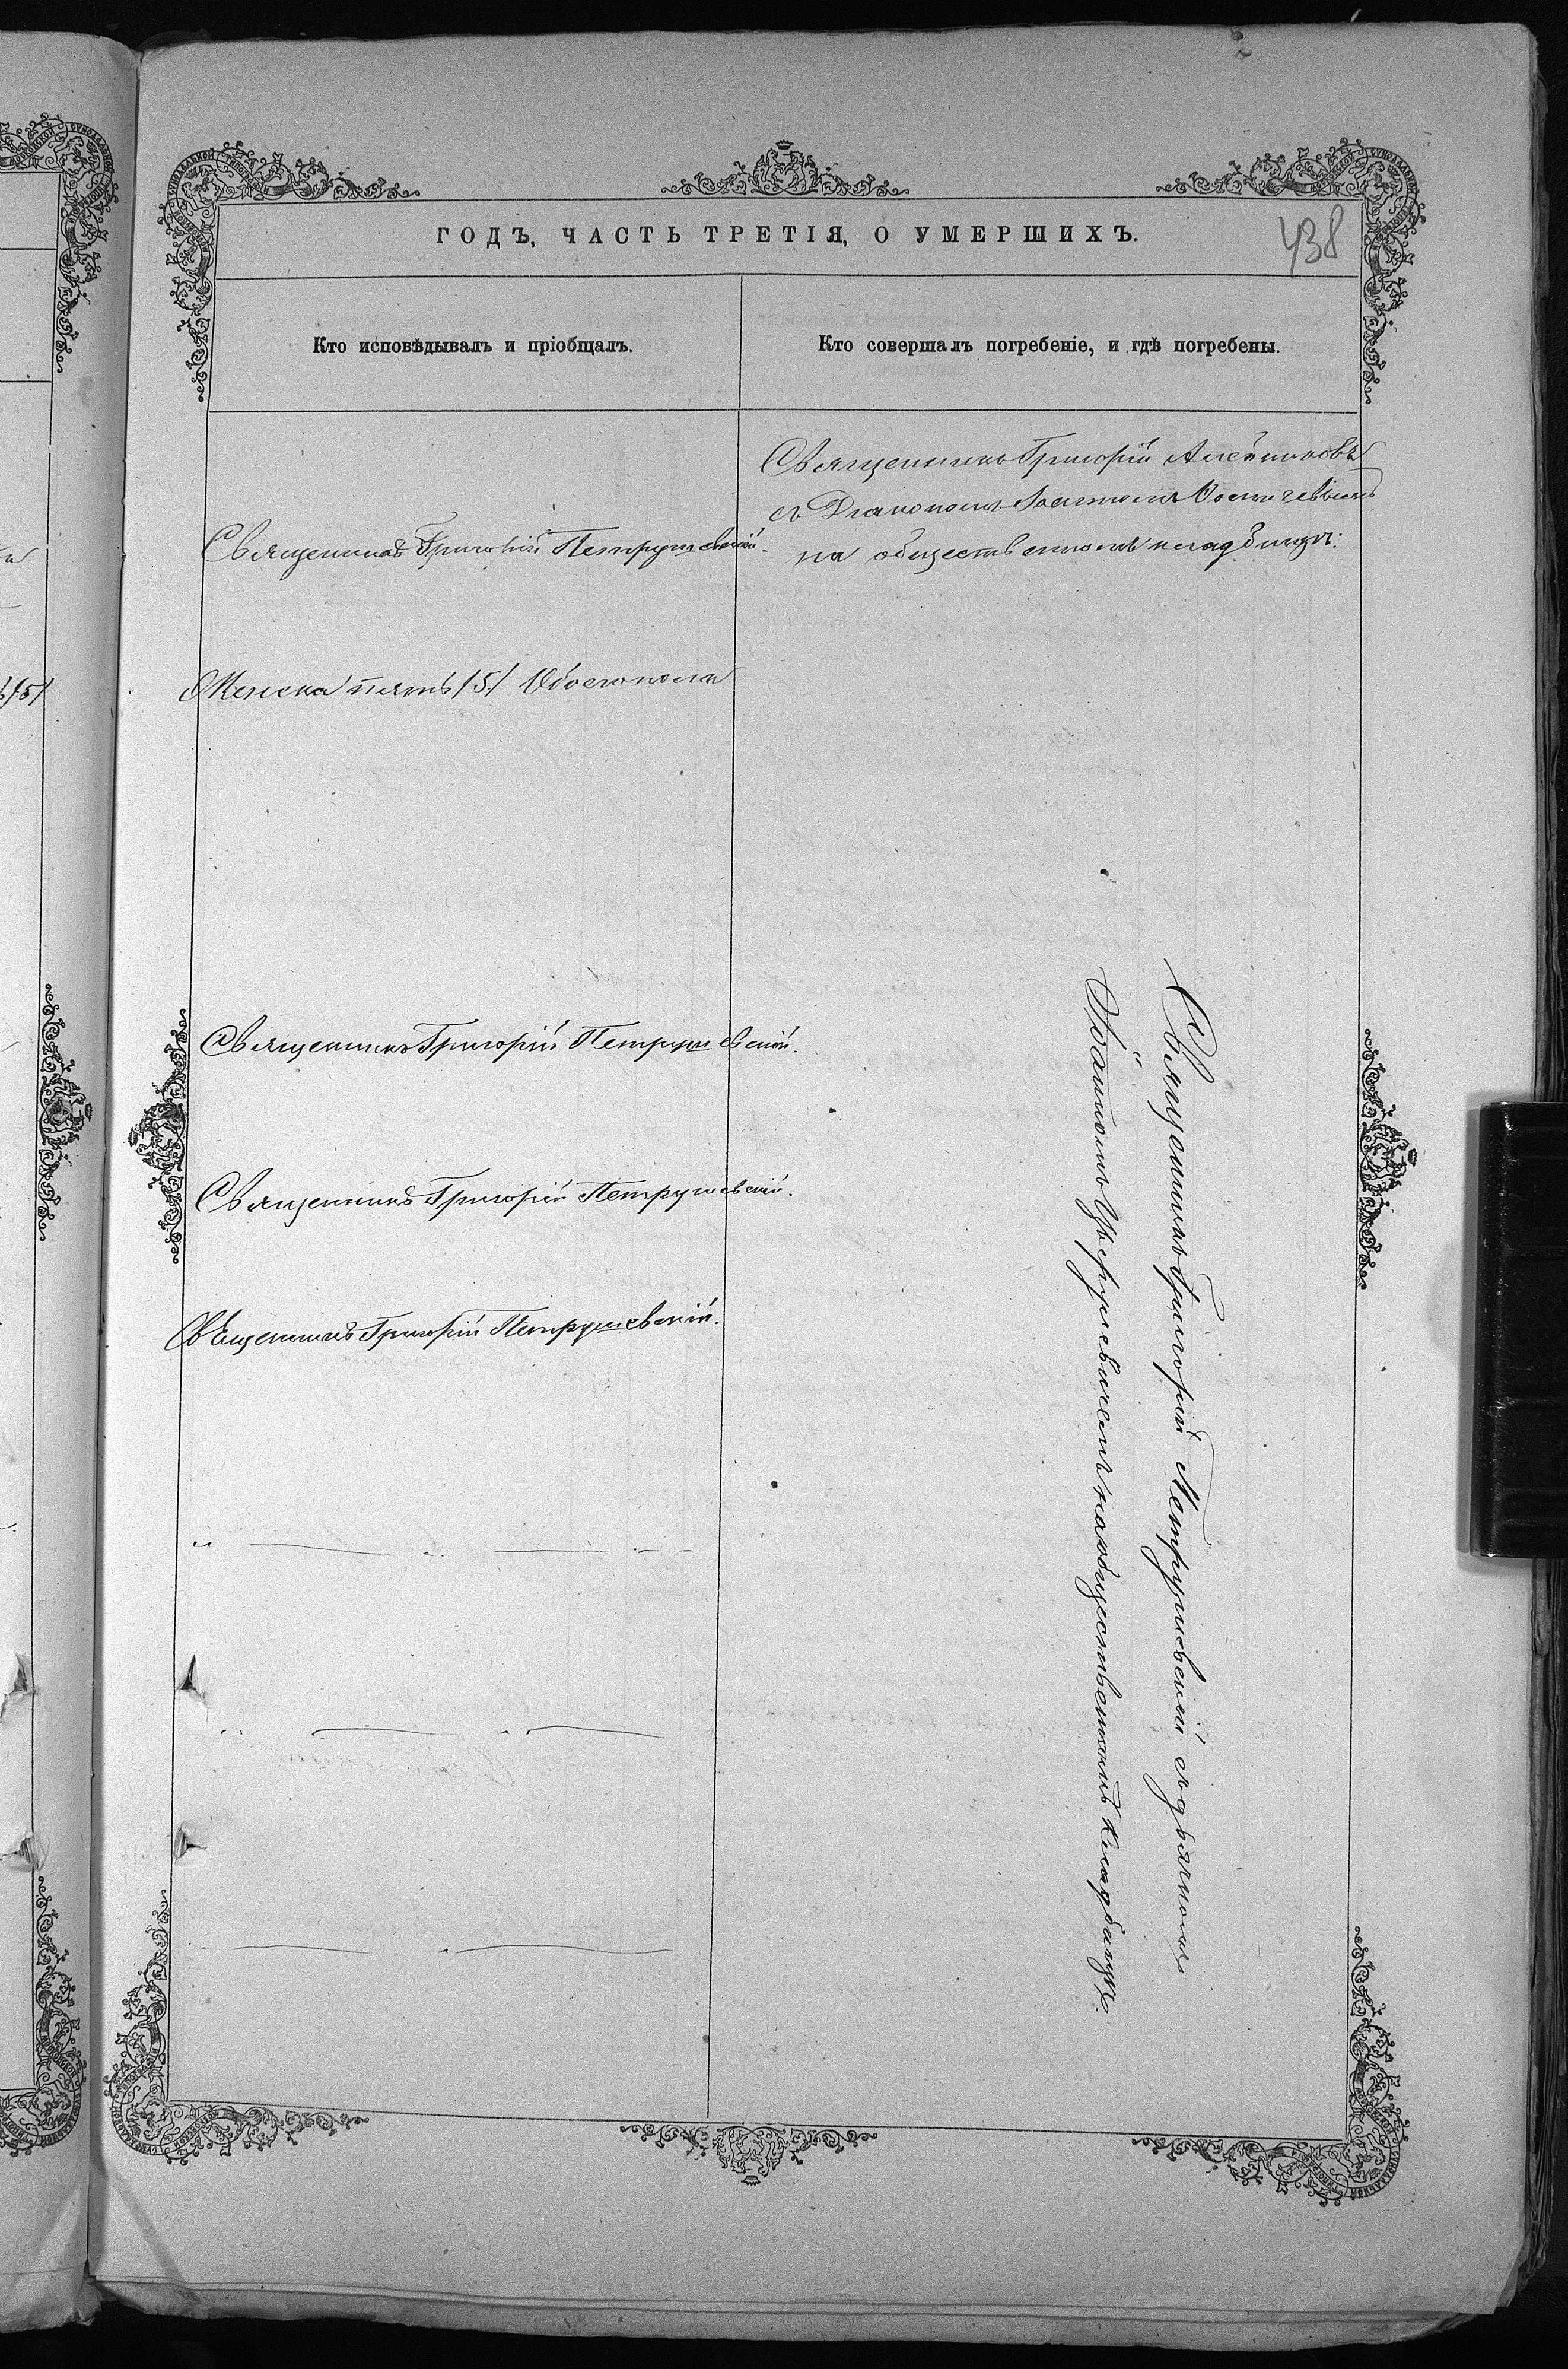 ГОДЪ, ЧАСТЬ ТРЕТІЯ, О УМЕРШИХЪ.
438
Кто исповѣдывалъ и пріобщалъ.
Кто совершалъ погребеніе, и гдѣ погребены.
Священникъ Григорій
съ Діакономъ
на общественномъ кладбищѣ.
Священникъ Григорій Петрушевскій.
Женска пять /5/ Обоего пола
Священникъ Григорій Петрушевскій.
Священникъ Григорій Петрушевскій.
Священникъ Григорій Петрушевскій.
Священникъ Григорій Петрушевскій съ дьячкомъ
на общественномъ кладбищѣ.
/5/